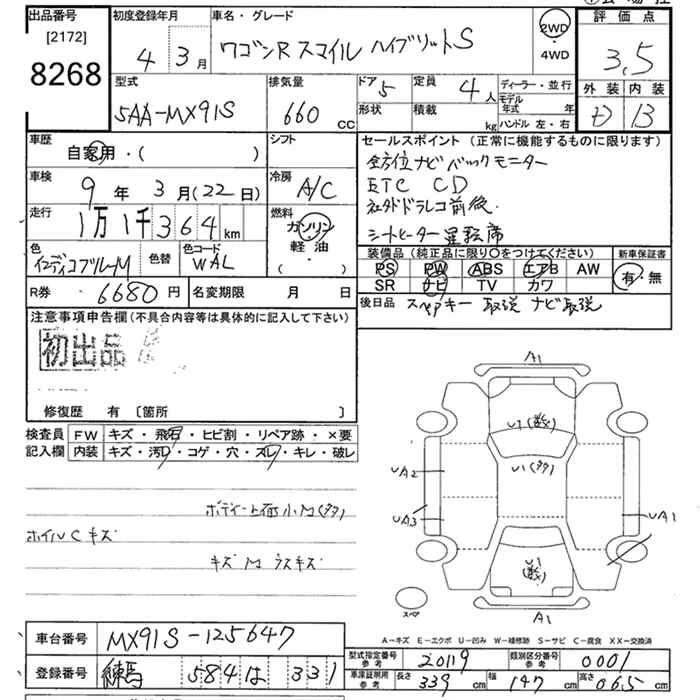 出品番号 初度登録年月 車名・グレード 評価点
[2172]
8268
4 3月 ワゴンR スマイル ハイブリットS 2WD・4WD 3,5
型式 排気量 ドア 定員 ディーラー・並行 外装 内装
5AA-MX91S 660 CC 5 4人 モデル年式 年 D 13
形状 積載 kg ハンドル 左・右
車歴 シフト セールスポイント (正常に機能するものに限ります)
自家用・( )
全方位ナビ バックモニター
車検 冷房
9年3月(22日) A/C ETC CD
走行 燃料
1万1千364km ガソリン 社外ドラレコ前後.
軽油 シートヒーター 運転席
( )
色 色替 色コード
インディゴブルーM WAL
装備品 (純正品に限り〇をつけてください) 新車保証書
PS PW ABS エアB AW 有・無
SR ナビ TV カワ
R券 6680円 名変期限 月 日
後日品 スペアキー 取説 ナビ取説
注意事項申告欄(不具合内容等は具体的に記入して下さい)
初出品
修復歴 有 〔箇所 〕
検査員 FW キズ・飛石・ヒビ割・リペア跡・×要
記入欄 内装 キズ・汚レ・コゲ・穴・スレ・キレ・破レ
ボディー上面小M(多)
ホイルCキズ
キズM ウスキズ
A1
U1(数)
U1(多)
UA2
UA3
UA1
U1
(数)
スペア
A1
A-キズ E-エクボ U-凹み W-補修跡 S-サビ C-腐食 XX-交換済
車台番号 MX91S-125647
登録番号 練馬 584 は 331
型式指定番号 参考 20119 類別区分番号 参考 0001
車庫証明用 参考 長さ 339cm 幅 147cm 高さ 065cm